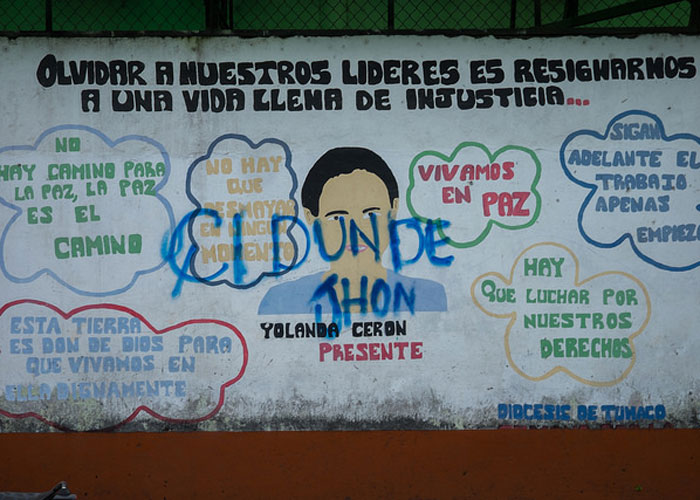 OLVIDAR A NUESTROS LIDERES ES RESIGNARNOS
A UNA VIDA LLENA DE INJUSTICIA...
NO
HAY CAMINO PARA
LA PAZ, LA PAZ
ES EL
CAMINO
NO HAY
QUE
DESMAYAR
EN NINGUN
MOMENTO
VIVAMOS
EN PAZ
SIGAN
ADELANTE EL
TRABAJO
APENAS
EMPIEZA
CIDUNDE
JHON
ESTA TIERRA
ES DON DE DIOS PARA
QUE VIVAMOS EN
ELLA DIGNAMENTE
YOLANDA CERON
PRESENTE
HAY
QUE LUCHAR POR
NUESTROS
DERECHOS
DIOCESIS DE TUMACO